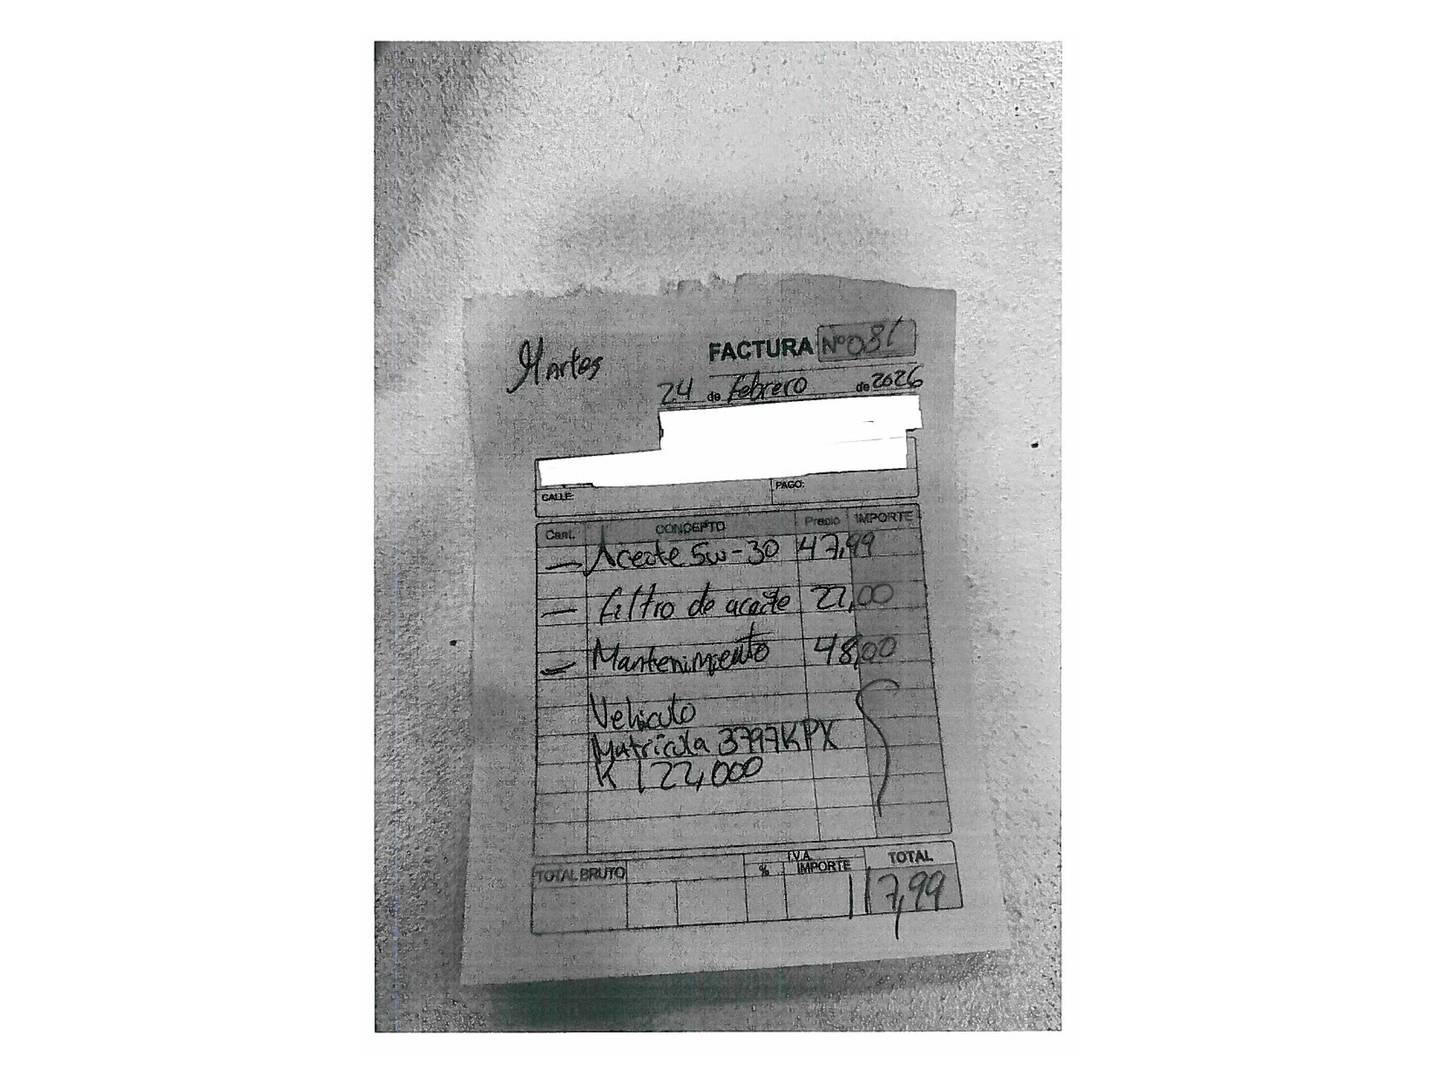 Martes
FACTURA Nº 031
24 de febrero de 2026
CALLE: PAGO:
Cant. CONCEPTO Precio IMPORTE
— Aceite 5w-30 47,99
— filtro de aceite 22,00
— Mantenimiento 48,00
Vehiculo
Matricula 3797KPX
K 122,000
TOTAL BRUTO % I.V.A. IMPORTE TOTAL
117,99